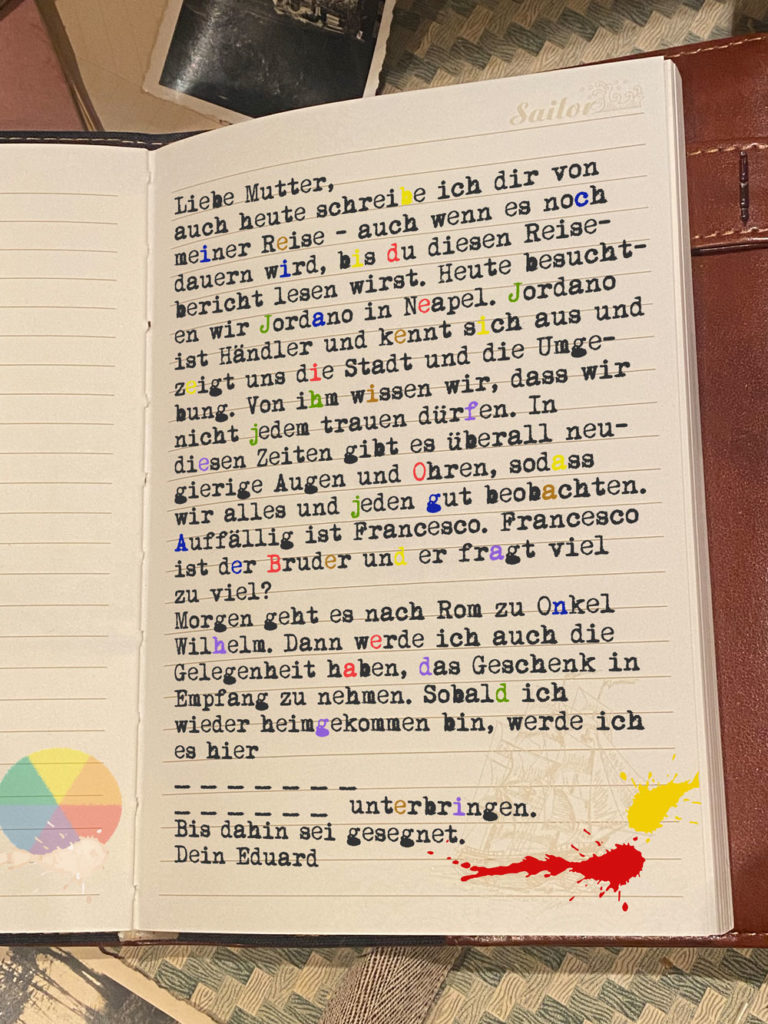 Sailor
Liebe Mutter,
auch heute schreibe ich dir von
meiner Reise - auch wenn es noch
dauern wird, bis du diesen Reise-
bericht lesen wirst. Heute besucht-
en wir Jordano in Neapel. Jordano
ist Händler und kennt sich aus und
zeigt uns die Stadt und die Umge-
bung. Von ihm wissen wir, dass wir
nicht jedem trauen dürfen. In
diesen Zeiten gibt es überall neu-
gierige Augen und Ohren, sodass
wir alles und jeden gut beobachten.
Auffällig ist Francesco. Francesco
ist der Bruder und er fragt viel
zu viel?
Morgen geht es nach Rom zu Onkel
Wilhelm. Dann werde ich auch die
Gelegenheit haben, das Geschenk in
Empfang zu nehmen. Sobald ich
wieder heimgekommen bin, werde ich
es hier
_ _ _ _ _ _ _
_ _ _ _ _ _ unterbringen.
Bis dahin sei gesegnet.
Dein Eduard